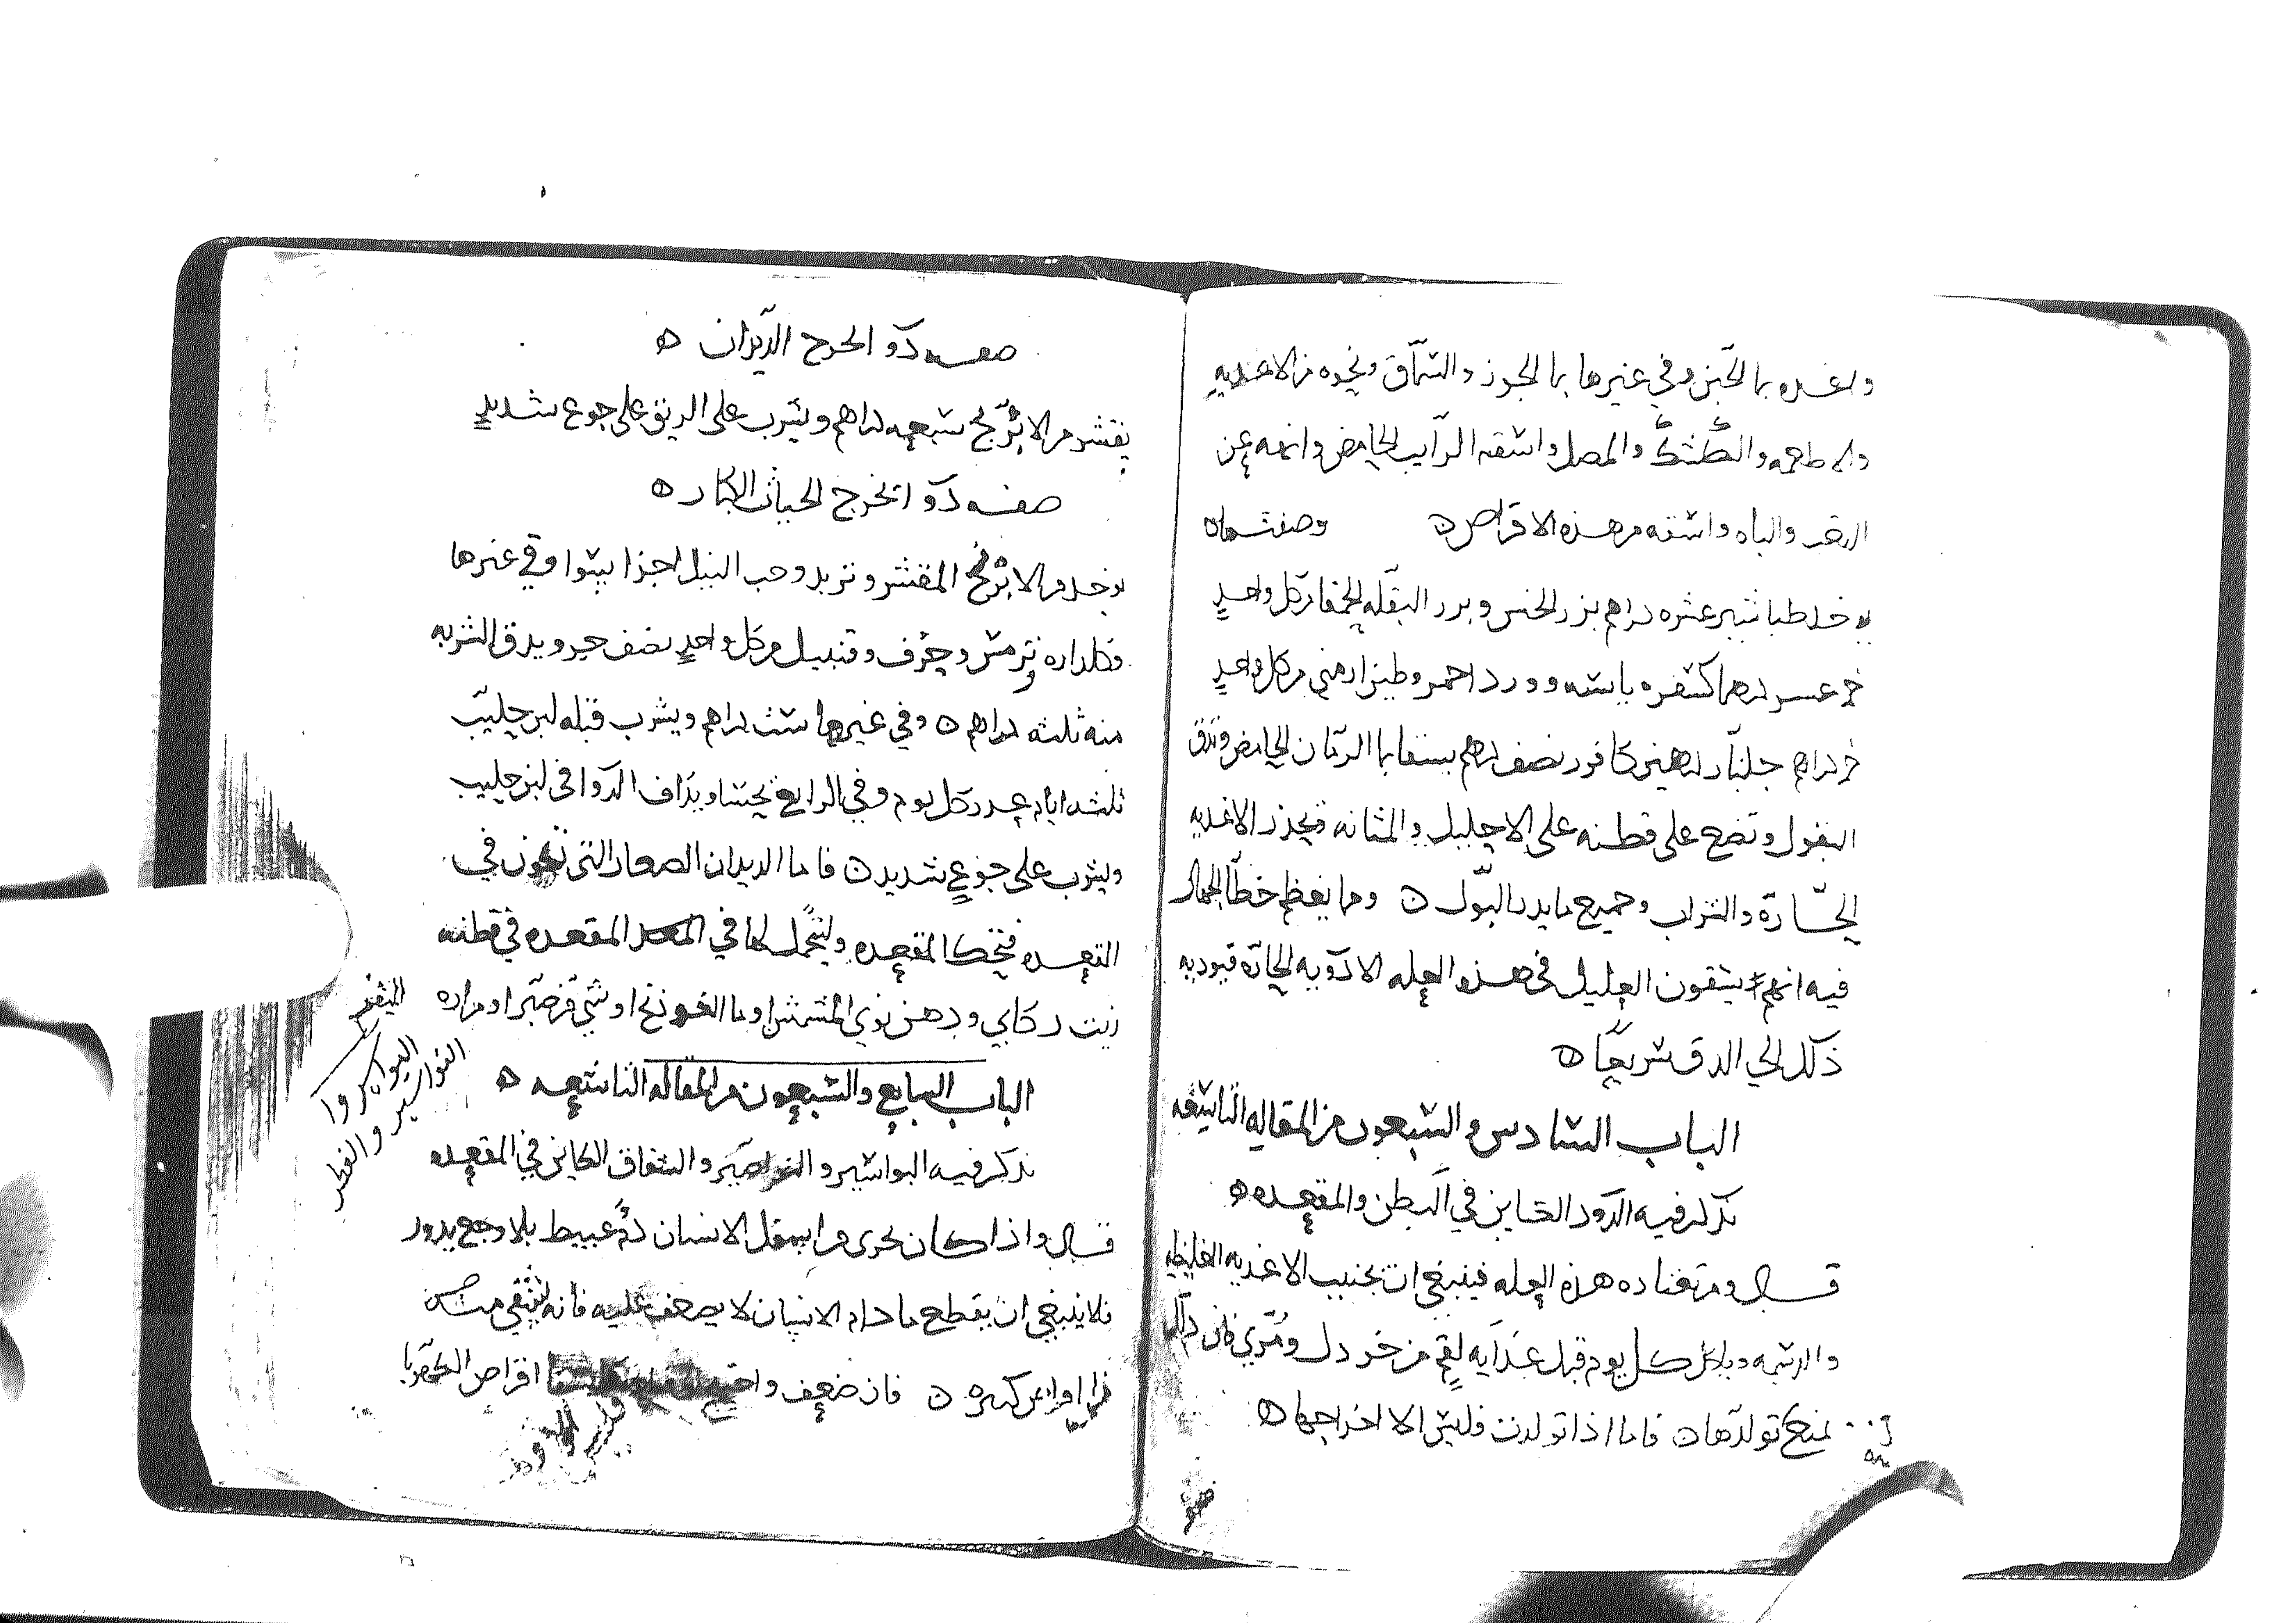 واغده بما الحبن وفي غيرها بما الجوز والسماق ونحوه من الاغديه
والمصل واسقه الرايب الحامض وانهه عن
والباه واسقه من هذه الاقراص ه وصفتها ه
يوخد طباشير عشره دراهم بزر الخس وبزر البقله الحمقا من كل واحد
درهما كسفره يابسه وورد احمر وطين ارمني من كل واحد
دراهم جلنار درهمين كافور نصف درهم يسقا بما الرمان الحامض
البقول وتضع على قطنه على الاحليل والمثانه وتحذر الاغديه
الحاره والشراب وجميع ما يدر البول ه ومما يعظم خطا الجهال
فيه انهم يسقون العليل في هذه العله الادويه الحاره فيوديه
ذلك الي الدق سريعا ه
الباب السادس والسبعون من المقاله التاسعه
نذكر فيه الدود الكاين في البطن والمقعده ه
قال ومن تعتاده هذه العله فينبغي ان يجنب الاغديه الغليظه
والدسمه وياكل كل يوم قبل غدايه لقم من خردل ومري فان ذلك
يمنع تولدها ه فاما اذا تولدت فليس الا اخراجها ه
صفه دوا لخرج الديدان ه
يقشر من الابرنج سبعه دراهم ويشرب على الريق على جوع شديد
صفه دوا تخرج الحيات الكبار ه
يوخد من الابرنج المقشر وتربد وحب النيل اجزا سوا وفي غيرها
وترمس وحرف وقنبيل من كل واحد نصف جزو يدق الشربه
منه ثلثه دراهم ه وفي غيرها ست دراهم ويشرب قبله لبن حليب
ثلثه ايام كل يوم وفي الرابع يحتسا ويداف الدوا في لبن حليب
ويشرب على جوع شديد ه فاما الديدان الصغار التي تكون في
المقعده وليحمل لها في المقعده في قطنه
زيت ركابي ودهن نوي المشمش او ما الفودنج او شي من صبر او مراره
الباب السابع والسبعون من المقاله التاسعه ه
نذكر فيه البواسير والنواصير والشقاق الكاين في المقعده
قال واذا كان يجري من اسفل الانسان دم عبيط بلا وجع يدور
فلا ينبغي ان يقطع ما دام الانسان لا يضعف عليه فانه يشفي من
امراض كبيره ه فان ضعف اقراص الكهربا